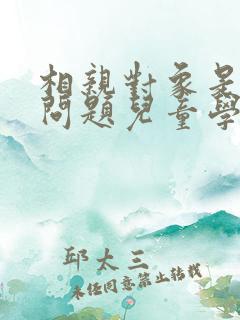 相親對象是
問題兒童學
邱太三
未經同意禁止轉載